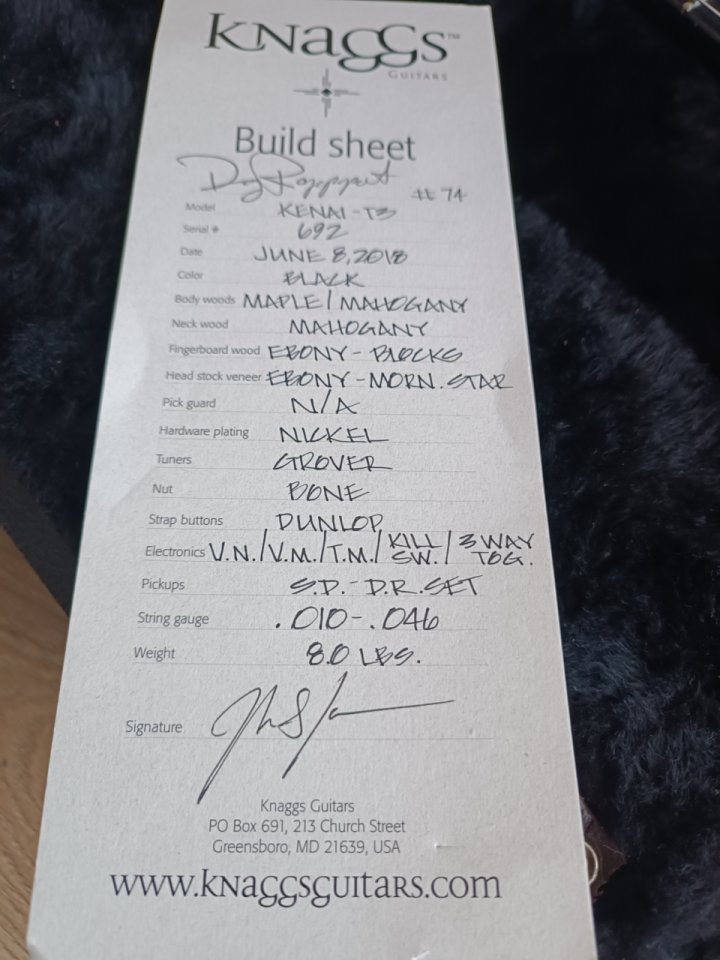 KNaGGS™
GUITARS
Build sheet
#74
Model KENAI-T3
Serial # 692
Date JUNE 8, 2018
Color BLACK
Body woods MAPLE/MAHOGANY
Neck wood MAHOGANY
Fingerboard wood EBONY-BLOCKS
Head stock veneer EBONY-MORN. STAR
Pick guard N/A
Hardware plating NICKEL
Tuners GROVER
Nut BONE
Strap buttons DUNLOP
Electronics V.N./V.M./T.M./KILL SW./3 WAY TOG.
Pickups S.D.-D.R.SET
String gauge .010-.046
Weight 8.0 LBS.
Signature
Knaggs Guitars
PO Box 691, 213 Church Street
Greensboro, MD 21639, USA
www.KNaGGSGUITARS.com